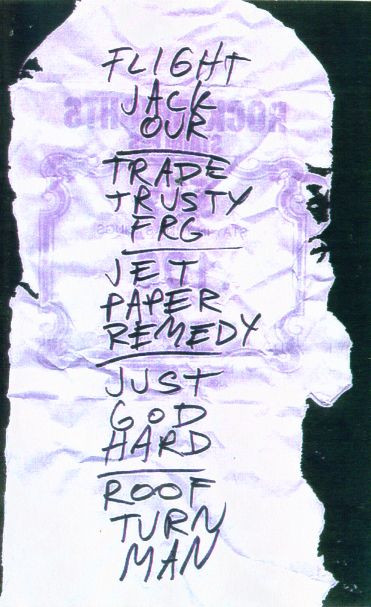 FLIGHT
JACK
OUR
TRADE
TRUSTY
FRG
JET
PAPER
REMEDY
JUST
GOD
HARD
ROOF
TURN
MAN